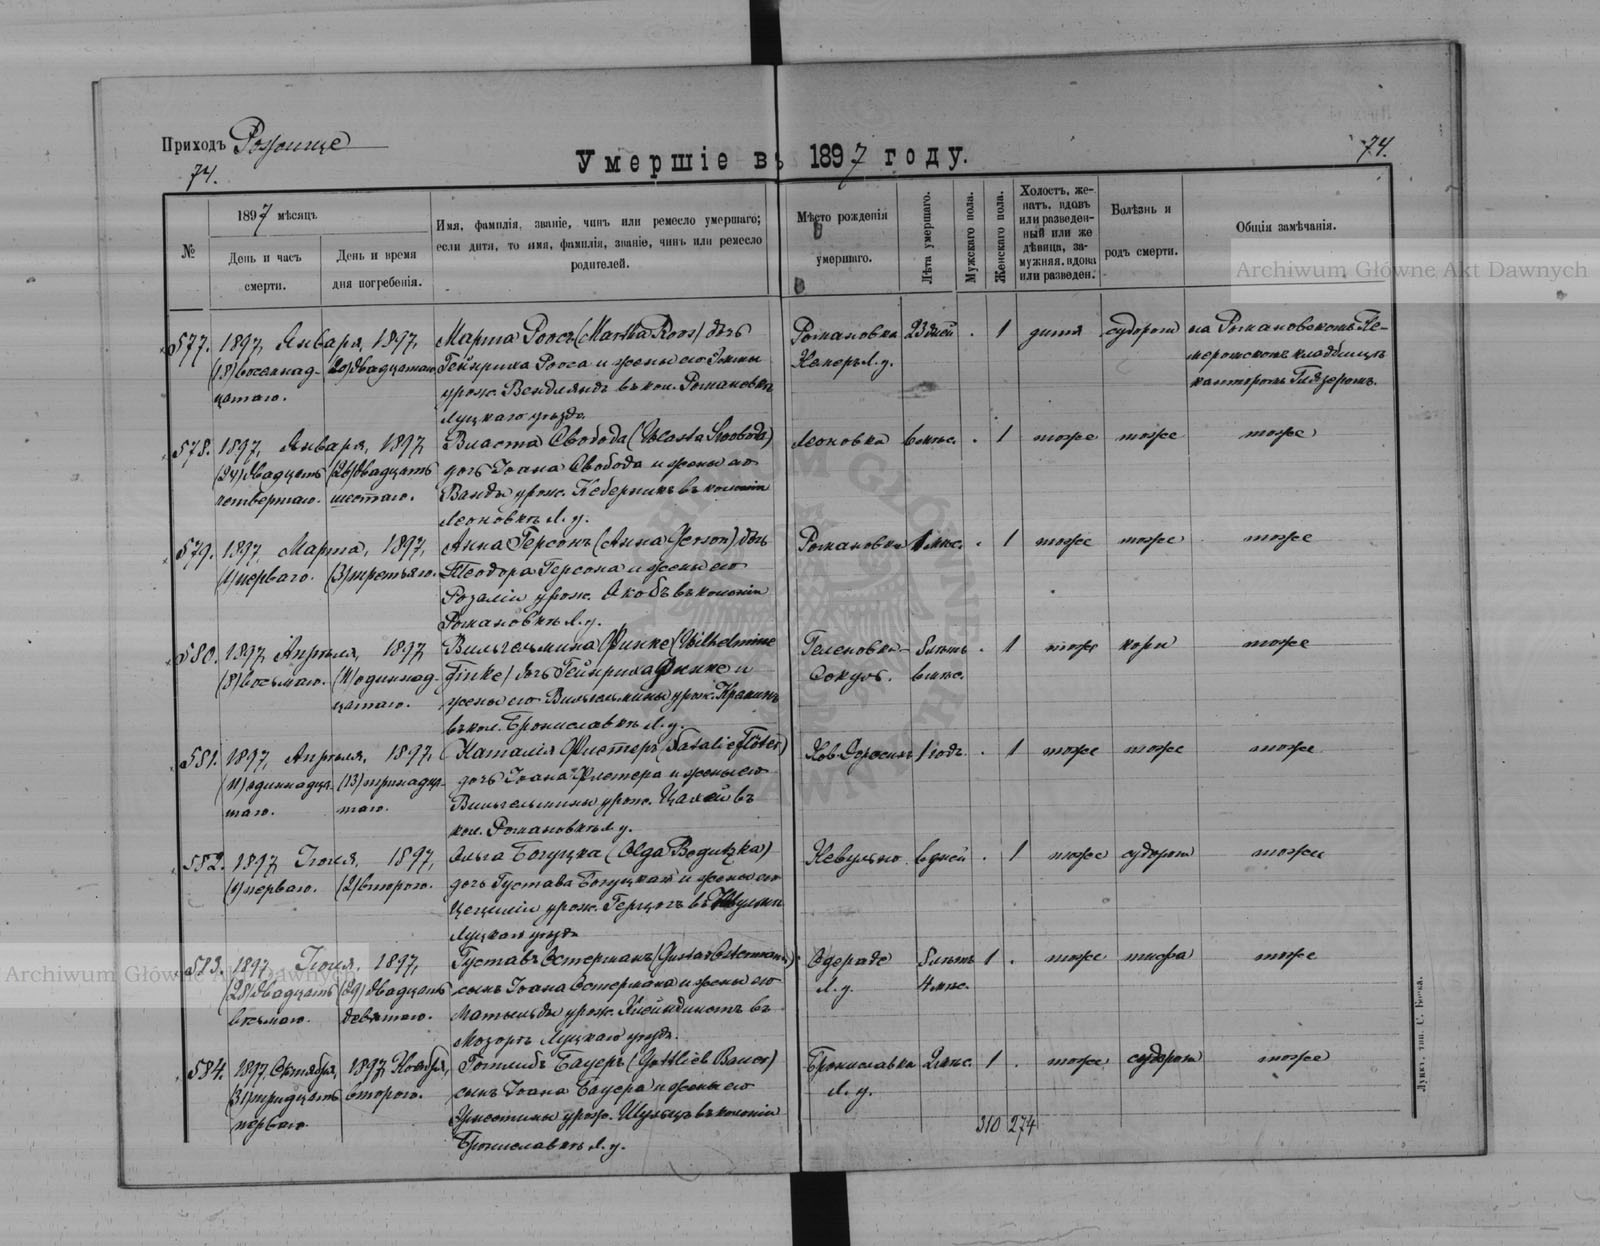 Приходъ Рожище
Умершіе въ 1897 году.
74.
74.
№
1897 мѣсяцъ
День и часъ смерти.
День и время дня погребенія.
Имя, фамилія, званіе, чинъ или ремесло умершаго;
если дитя, то имя, фамилія, званіе, чинъ или ремесло
родителей.
Мѣсто рожденія
умершаго.
Лѣта умершаго.
Мужскаго пола.
Женскаго пола.
Холостъ, же-
натъ, вдовъ
или разведен-
ный или же
дѣвица, за-
мужняя, вдова
или разведен.
Болѣзнь и
родъ смерти.
Общія замѣчанія.
Archiwum Główne Akt Dawnych
577. 1897, Января, 1897, Марта Роосъ (Martha Roos) дочь Романовка 23 дней . 1 дитя судорог на Романовскомъ
(18) восемнад- (20) двадцатаго Гейнриха Рооса и жены его
цатаго. урож. Вендляндъ въ кол. Романовкѣ канторомъ
Луцкаго уѣзда
578. 1897, Января, 1897, Власта Свобода (Vlasta Swoboda) Леоновка 6 мѣс. . 1 тоже тоже тоже
(24) двадцать (26) двадцать дочь Іоана Свобода и жены его
четвертаго. шестаго. Ванды урож. въ колоніи
Леоновкѣ Л. у.
579. 1897 Марта, 1897, Анна Герсонъ (Anna Gerson) дочь Романовка 1 мѣс. . 1 тоже тоже тоже
(1) перваго. (3) третьяго. Теодора Герсона и жены его
Розаліи урож. Якобъ въ колоніи
Романовкѣ Л. у.
580. 1897 Апрѣля, 1897 Вильгельмина Финке (Wilhelmine Геленовка 5 лѣтъ . 1 тоже кори тоже
(8) восьмаго. (11) одиннад- Finke) дочь Гейнриха Финке и 6 мѣс.
цатаго. жены его Вильгельмины урож.
въ кол. Брониславкѣ Л. у.
581. 1897, Апрѣля, 1897, Наталія Флетеръ (Natalie Flöter) 1 годъ . 1 тоже тоже тоже
(11) одиннадца- (13) тринадца- дочь Іоана Флетера и жены его
таго. таго. Вильгельмины урож. въ
кол. Романовкѣ Л. у.
582. 1897, Іюня, 1897, Ольга Богуцка (Olga Bogutzka) 6 дней . 1 тоже судорог тоже
(1) перваго. (2) втораго. дочь Густава и жены его
урож. Герцогъ въ
Луцкаго уѣзда
583. 1897, Іюня, 1897, Густавъ Остерманъ (Gustav Ostermann) 5 лѣтъ 1 . тоже тифа тоже
(28) двадцать (29) двадцать сынъ Іоана Остермана и жены его Л. у. 4 мѣс.
восьмаго. девятаго. Матильды урож. въ
Луцкаго уѣзда.
584. 1897, Октября, 1897 Ноября, Готлибъ Бауеръ (Gottlieb Bauer) Брониславка 2 мѣс. 1 . тоже судорог тоже
(31) тридцать втораго. сынъ Іоана Бауера и жены его Л. у.
перваго. урож. Шульцъ въ колоніи
Брониславкѣ Л. у.
310 274
Archiwum Główne Akt Dawnych
Луцкъ, тип. С. Бокка.